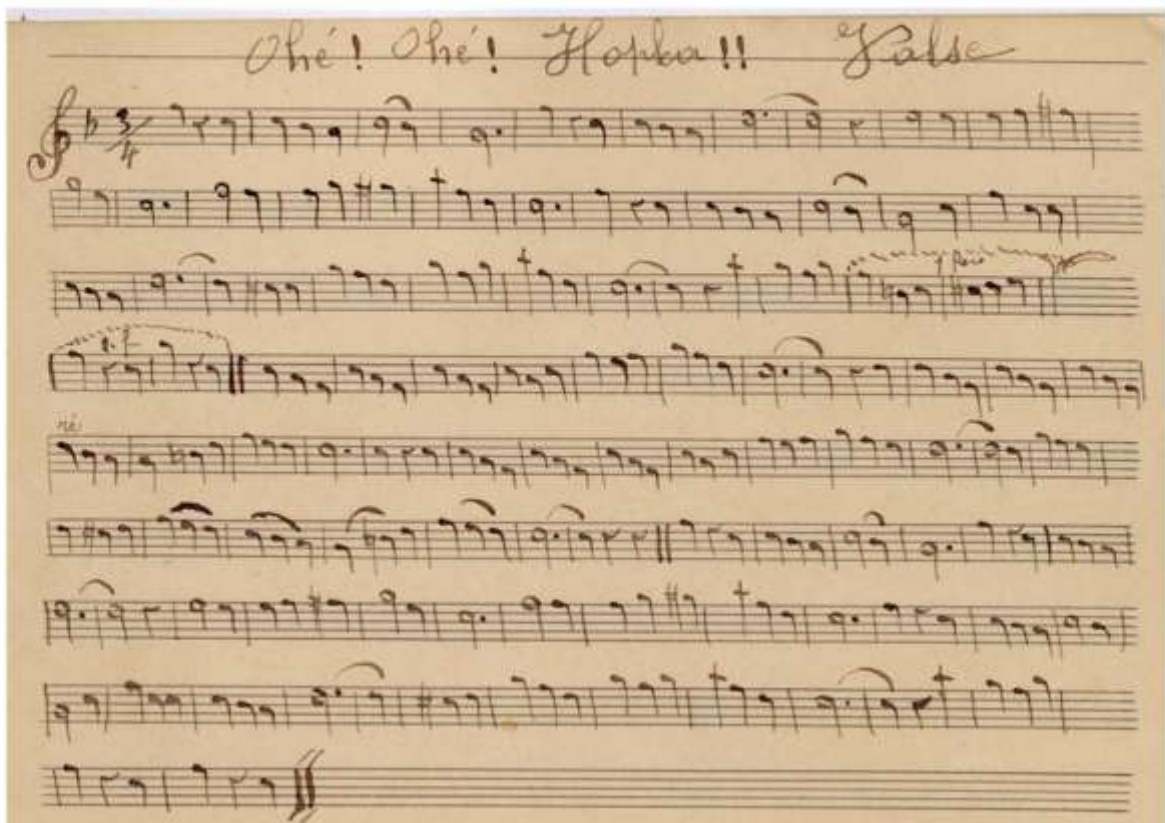 Ohé! Ohé! Hopka!! Valse
3/4